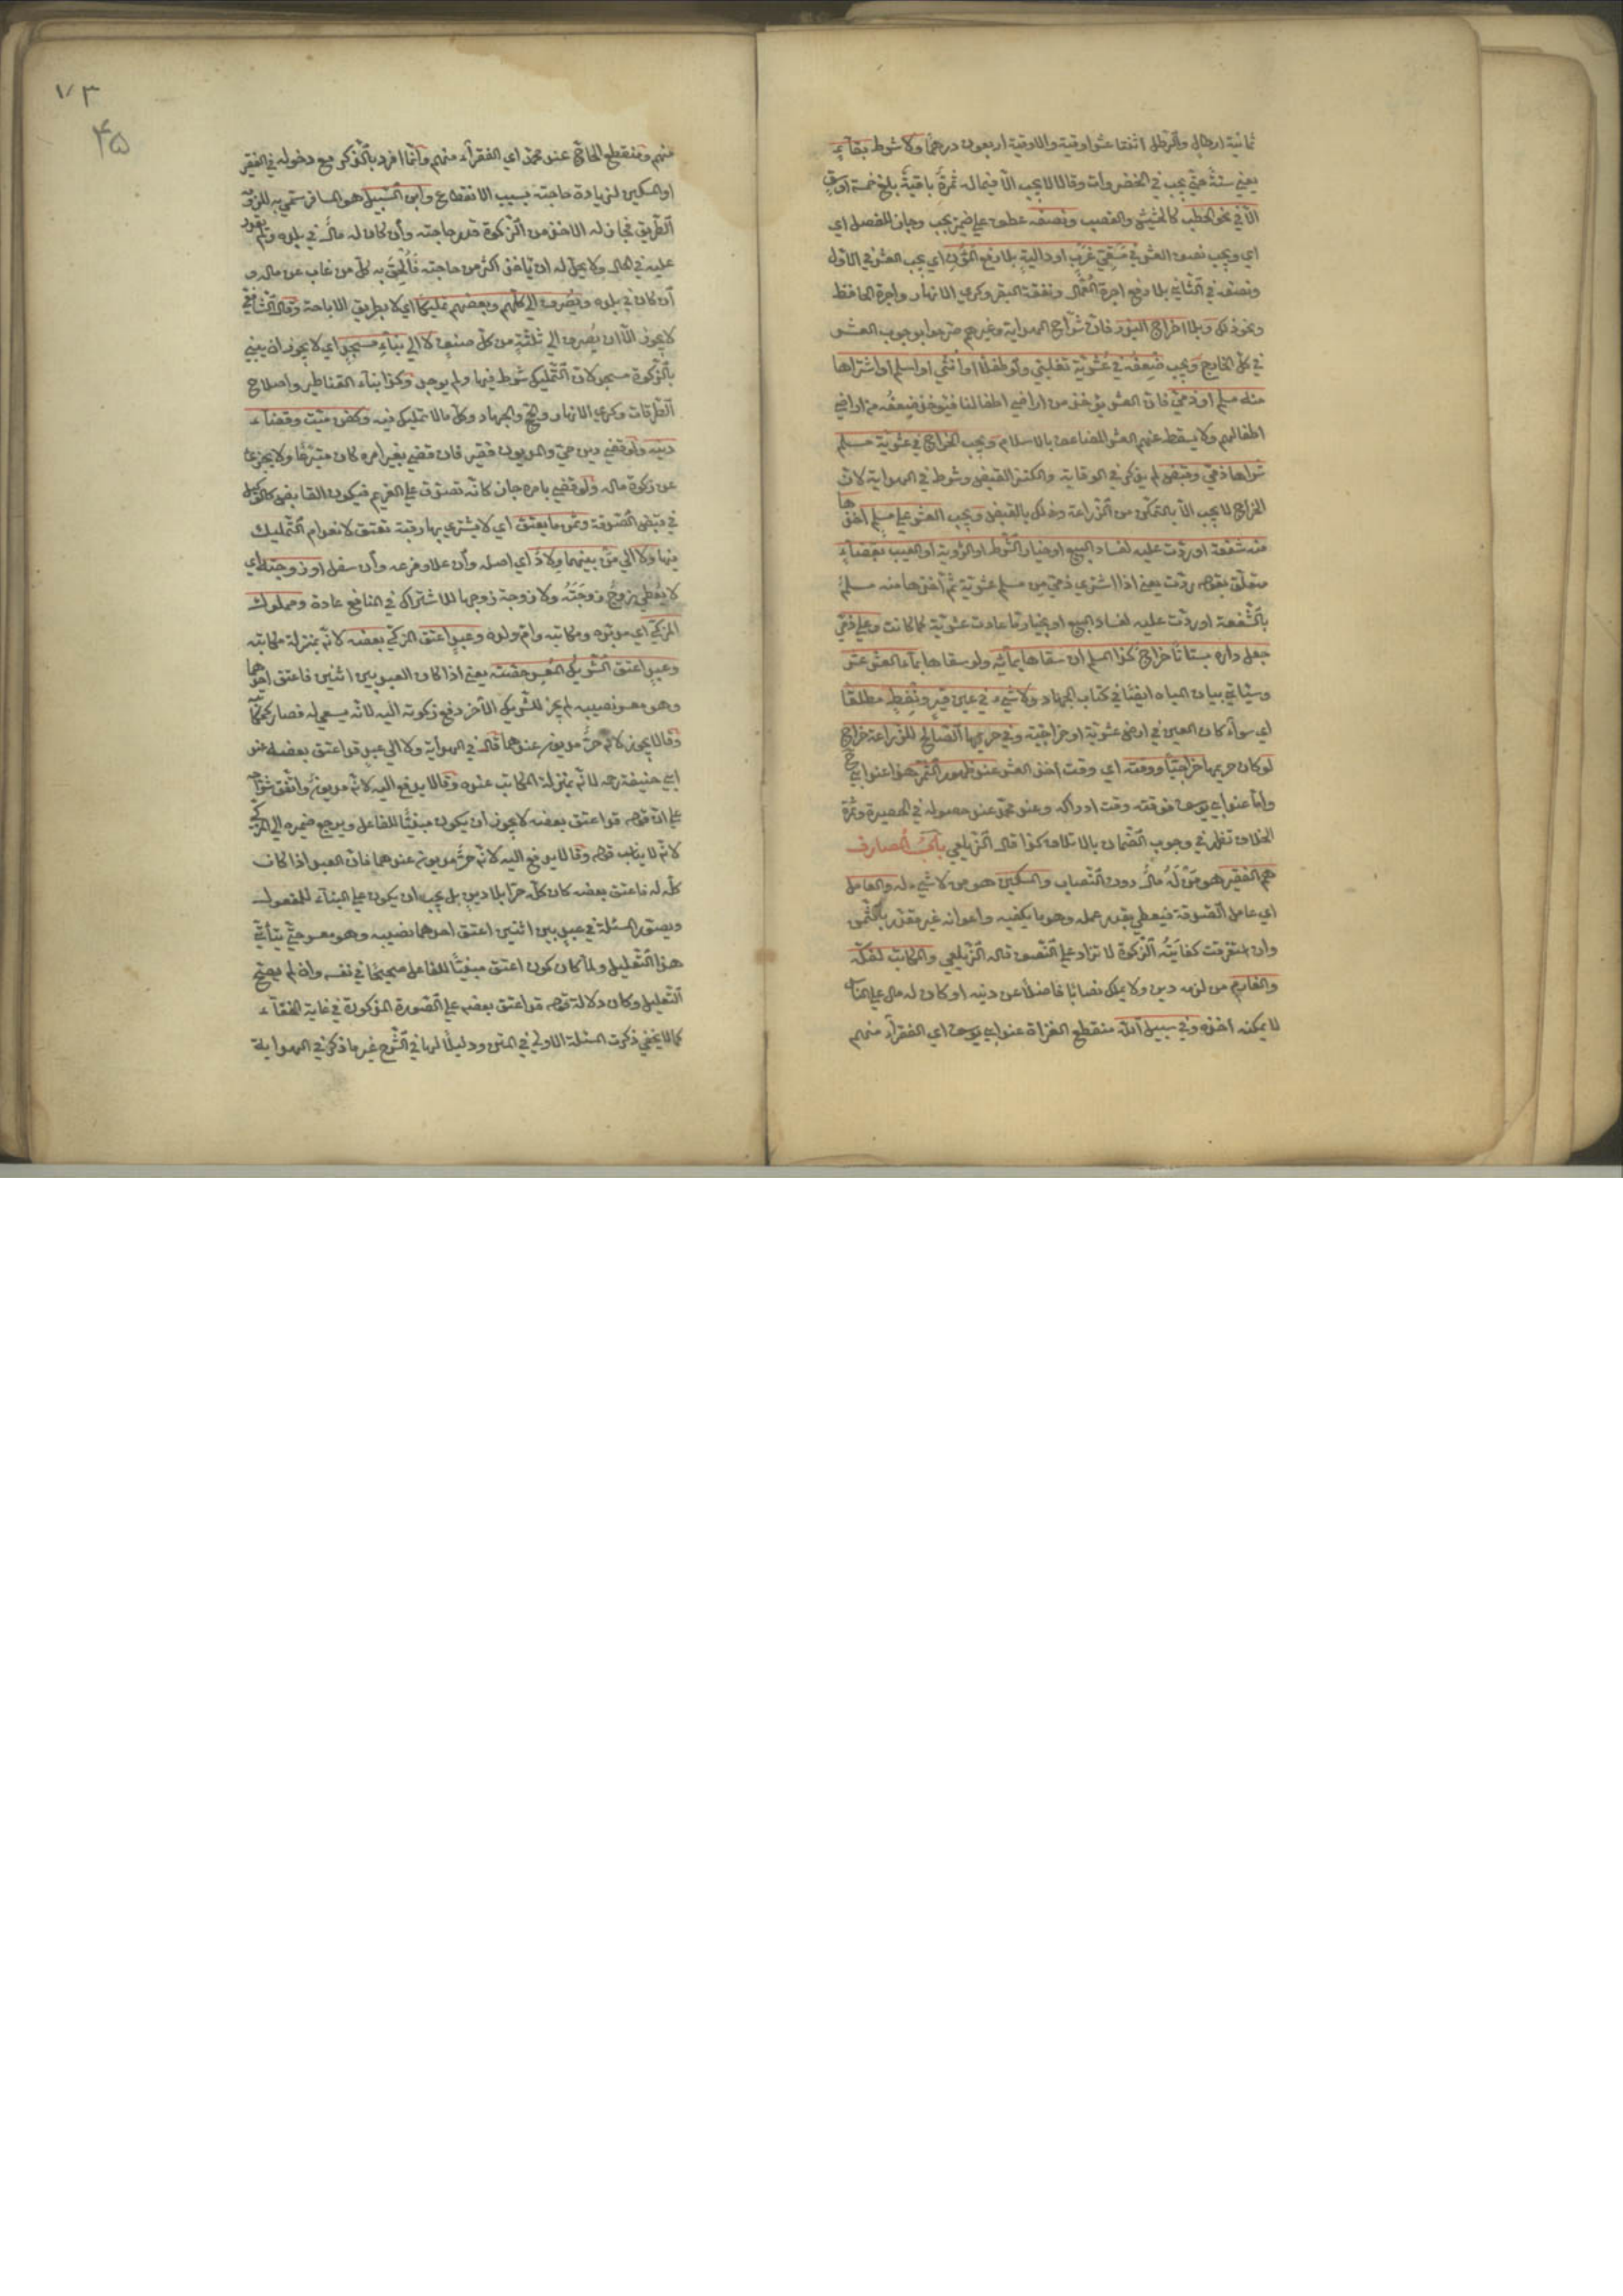 ثمانية ارطال والرطل اثنتا عشر اوقية والاوقية اربعون درهما ولا شرط بقاء
يعني سنة حتى يجب في الخضروات وقالا لا يجب الا فيما له ثمرة باقية بلغ خمسة اوسق
الا في نحو الحطب كالحشيش والقصب ونصفه عطف على ضمير يجب وجاز للفصل اي
اي ويجب نصف العشر في مسقي غرب او دالية بلا رفع المؤن اي يجب العشر في الاول
ونصفه في الثاني بلا رفع اجرة العمال ونفقة البقر وكري الانهار واجرة الحافظ
ونحو ذلك وبلا اخراج البذر فان شراح الهداية وغيرهم صرحوا بوجوب العشر
في كل الخارج ويجب ضعفه في عشرية تغلبي ولو طفلا او انثى او اسلم او اشتراها
منه مسلم او ذمي فان العشر يؤخذ من اراضي اطفالنا فيؤخذ ضعفه من اراضي
اطفالهم ولا يسقط عنهم العشر المضاعف بالاسلام ويجب الخراج في عشرية مسلم
شراها ذمي وقبض لم يذكر في الوقاية والكنز القبض وشرط في الهداية لان
الخراج لا يجب الا بالتمكن من الزراعة وذلك بالقبض ويجب العشر على مسلم اخذها
منه شفعة او ردت عليه لفساد البيع او خيار الشرط او الرؤية او العيب بقضاء
متعلق بقوله ردت يعني اذا اشترى ذمي من مسلم عشرية ثم اخذها منه مسلم
بالشفعة او ردت عليه لفساد البيع او بخيار ما عادت عشرية كما كانت وعلى ذمي
جعل داره بستانا خراج كذا المسلم ان سقاها بمائه ولو سقاها بماء العشر عشر
وسيأتي بيان المياه ايضا في كتاب الجهاد ولا شيء في عين قير ونفط مطلقا
اي سواء كان العين في ارض عشرية او خراجية وفي حريمها الصالح للزراعة خراج
لو كان حريمها خراجيا ووقته اي وقت اخذ العشر عند ظهور الثمر هذا عند ابي ح
واما عند ابي يوسف فوقته وقت ادراكه وعند محمد عند حصوله في الحظيرة وثمرة
الخلاف تظهر في وجوب الضمان بالاتلاف كذا قال الزيلعي باب المصارف
هم الفقير هو من له مال دون النصاب والمسكين هو من لا شيء له والعامل
اي عامل الصدقة فيعطى بقدر عمله وهو ما يكفيه واعوانه غير مقدر بالثمن
وان استغرقت كفايته الزكوة لا تزاد على النصف قاله الزيلعي والمكاتب لفكه
والغارم من لزمه دين ولا يملك نصابا فاضلا عن دينه او كان له مال على الناس
لا يمكنه اخذه وفي سبيل الله منقطع الغزاة عند ابي يوسف اي الفقراء منهم
١٧٣
۴۵
منهم ومنقطع الحاج عند محمد اي الفقراء منهم وانما افرد بالذكر مع دخوله في الفقير
او المسكين لزيادة حاجته بسبب الانقطاع وابن السبيل هو المسافر سمي به للزومه
الطريق فجاز له الاخذ من الزكوة قدر حاجته وان كان له مال في بلده ولم يقدر
عليه في الحال ولا يحل له ان ياخذ اكثر من حاجته فألحق به كل من غاب عن ماله و
ان كان في بلده وتصرف الى كلهم وبعضهم تمليكا اي لا بطريق الاباحة وقال الشافعي
لا يجوز الا ان يصرف الى ثلثة من كل صنف لا الى بناء مسجد اي لا يجوز ان يبني
بالزكوة مسجد لان التمليك شرط فيها ولم يوجد وكذا بناء القناطير واصلاح
الطرقات وكري الانهار والحج والجهاد وكل ما لا تمليك فيه وكفن ميت وقضاء
دينه ولو قضى دين حي والمديون فقير فان قضى بغير امره كان متبرعا ولا يجزي
عن زكوة ماله ولو قضى بامره جاز كانه تصدق على الغريم فيكون القابض كالوكيل
في قبض الصدقة وثمن ما يعتق اي لا يشتري بها رقبة تعتق لانعدام التمليك
فيها ولا الى من بينهما ولاد اي اصله وان علا وفرعه وان سفل او زوجية اي
لا يعطي زوج زوجته ولا زوجة زوجها للاشتراك في المنافع عادة ومملوك
المزكي اي مدبره ومكاتبه وام ولده وعبد اعتق المزكي بعضه لانه بمنزلة مكاتبه
وعبد اعتق الشريك المعسر حصته يعني اذا كان العبد بين اثنين فاعتق احدهما
وهو معسر نصيبه لم يجز للشريك الآخر دفع زكوته اليه لانه يسعى له فصار كمكاتبه
وقالا يجوز لانه حر مديون عندهما قال في الهداية ولا الى عبد قد اعتق بعضه عند
ابي حنيفة رحمه لانه بمنزلة المكاتب عنده وقالا يدفع اليه لانه مديون واتفق شراحه
على ان قوله قد اعتق بعضه لا يجوز ان يكون مبنيا للفاعل ويرجع ضميره الى المزكي
لانه لا يناسب قوله وقالا يدفع اليه لانه حر مديون عندهما فان العبد اذا كان
كله له فاعتق بعضه كان كله حرا بلا دين بل يجب ان يكون على البناء للمفعول
ويصور المسئلة في عبد بين اثنين اعتق احدهما نصيبه وهو معسر حتى يتأتى
هذا التعليل ولما كان كون اعتق مبنيا للفاعل صحيحا في نفسه وان لم يصح
التعليل وكان دلالة قوله قد اعتق بعضه على الصورة المذكورة في غاية الخفاء
كما لا يخفى ذكرت المسئلة الاولى في المتن ودليلا لها في الشرح غير ما ذكر في الهداية